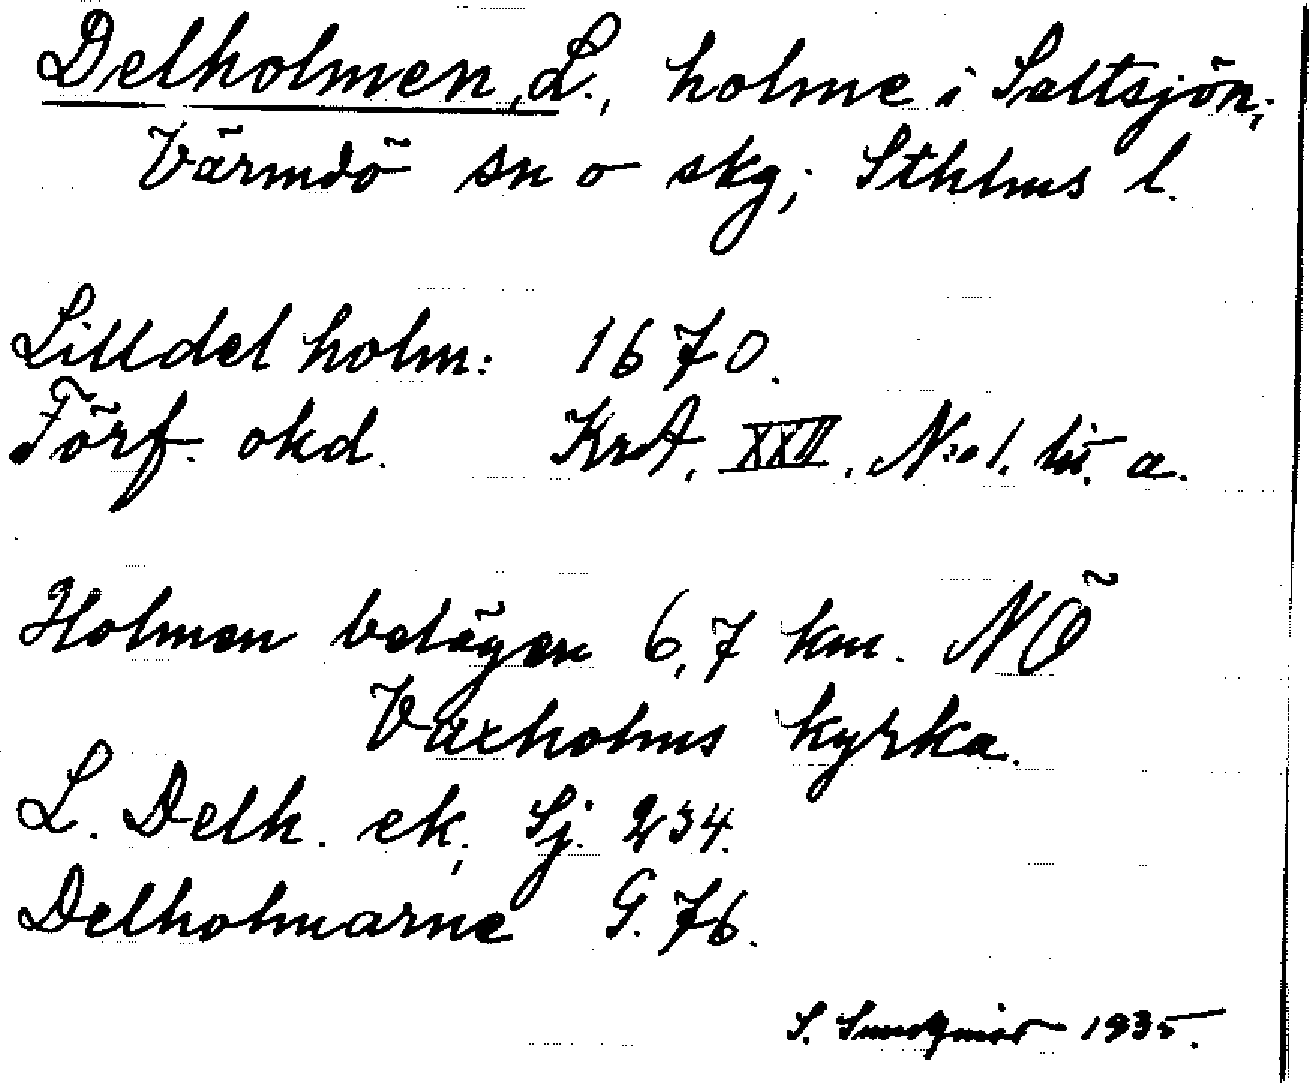 Delholmen, L., holme i Saltsjön;
Värmdö sn o skg; Sthlms l.
Lilldelholm: 1670.
Förf. okd. KrA, XXII. N:o 1. lit. a.
Holmen belägen 6,7 km. NÖ
Vaxholms kyrka.
L. Delh. ek; Sj. 234.
Delholmarne G. 76.
S. Sundqvist 1935.